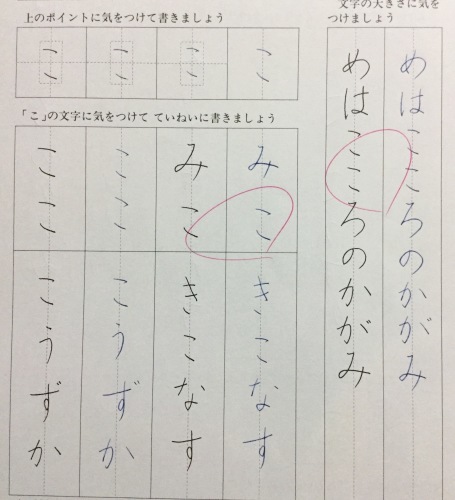 文字の大きさに気を
つけましょう
めはこころのかがみ
めはこころのかがみ
上のポイントに気をつけて書きましょう
こ
こ
こ
こ
「こ」の文字に気をつけて ていねいに書きましょう
みこ
みこ
ここ
ここ
きこなす
きこなす
こうずか
こうずか